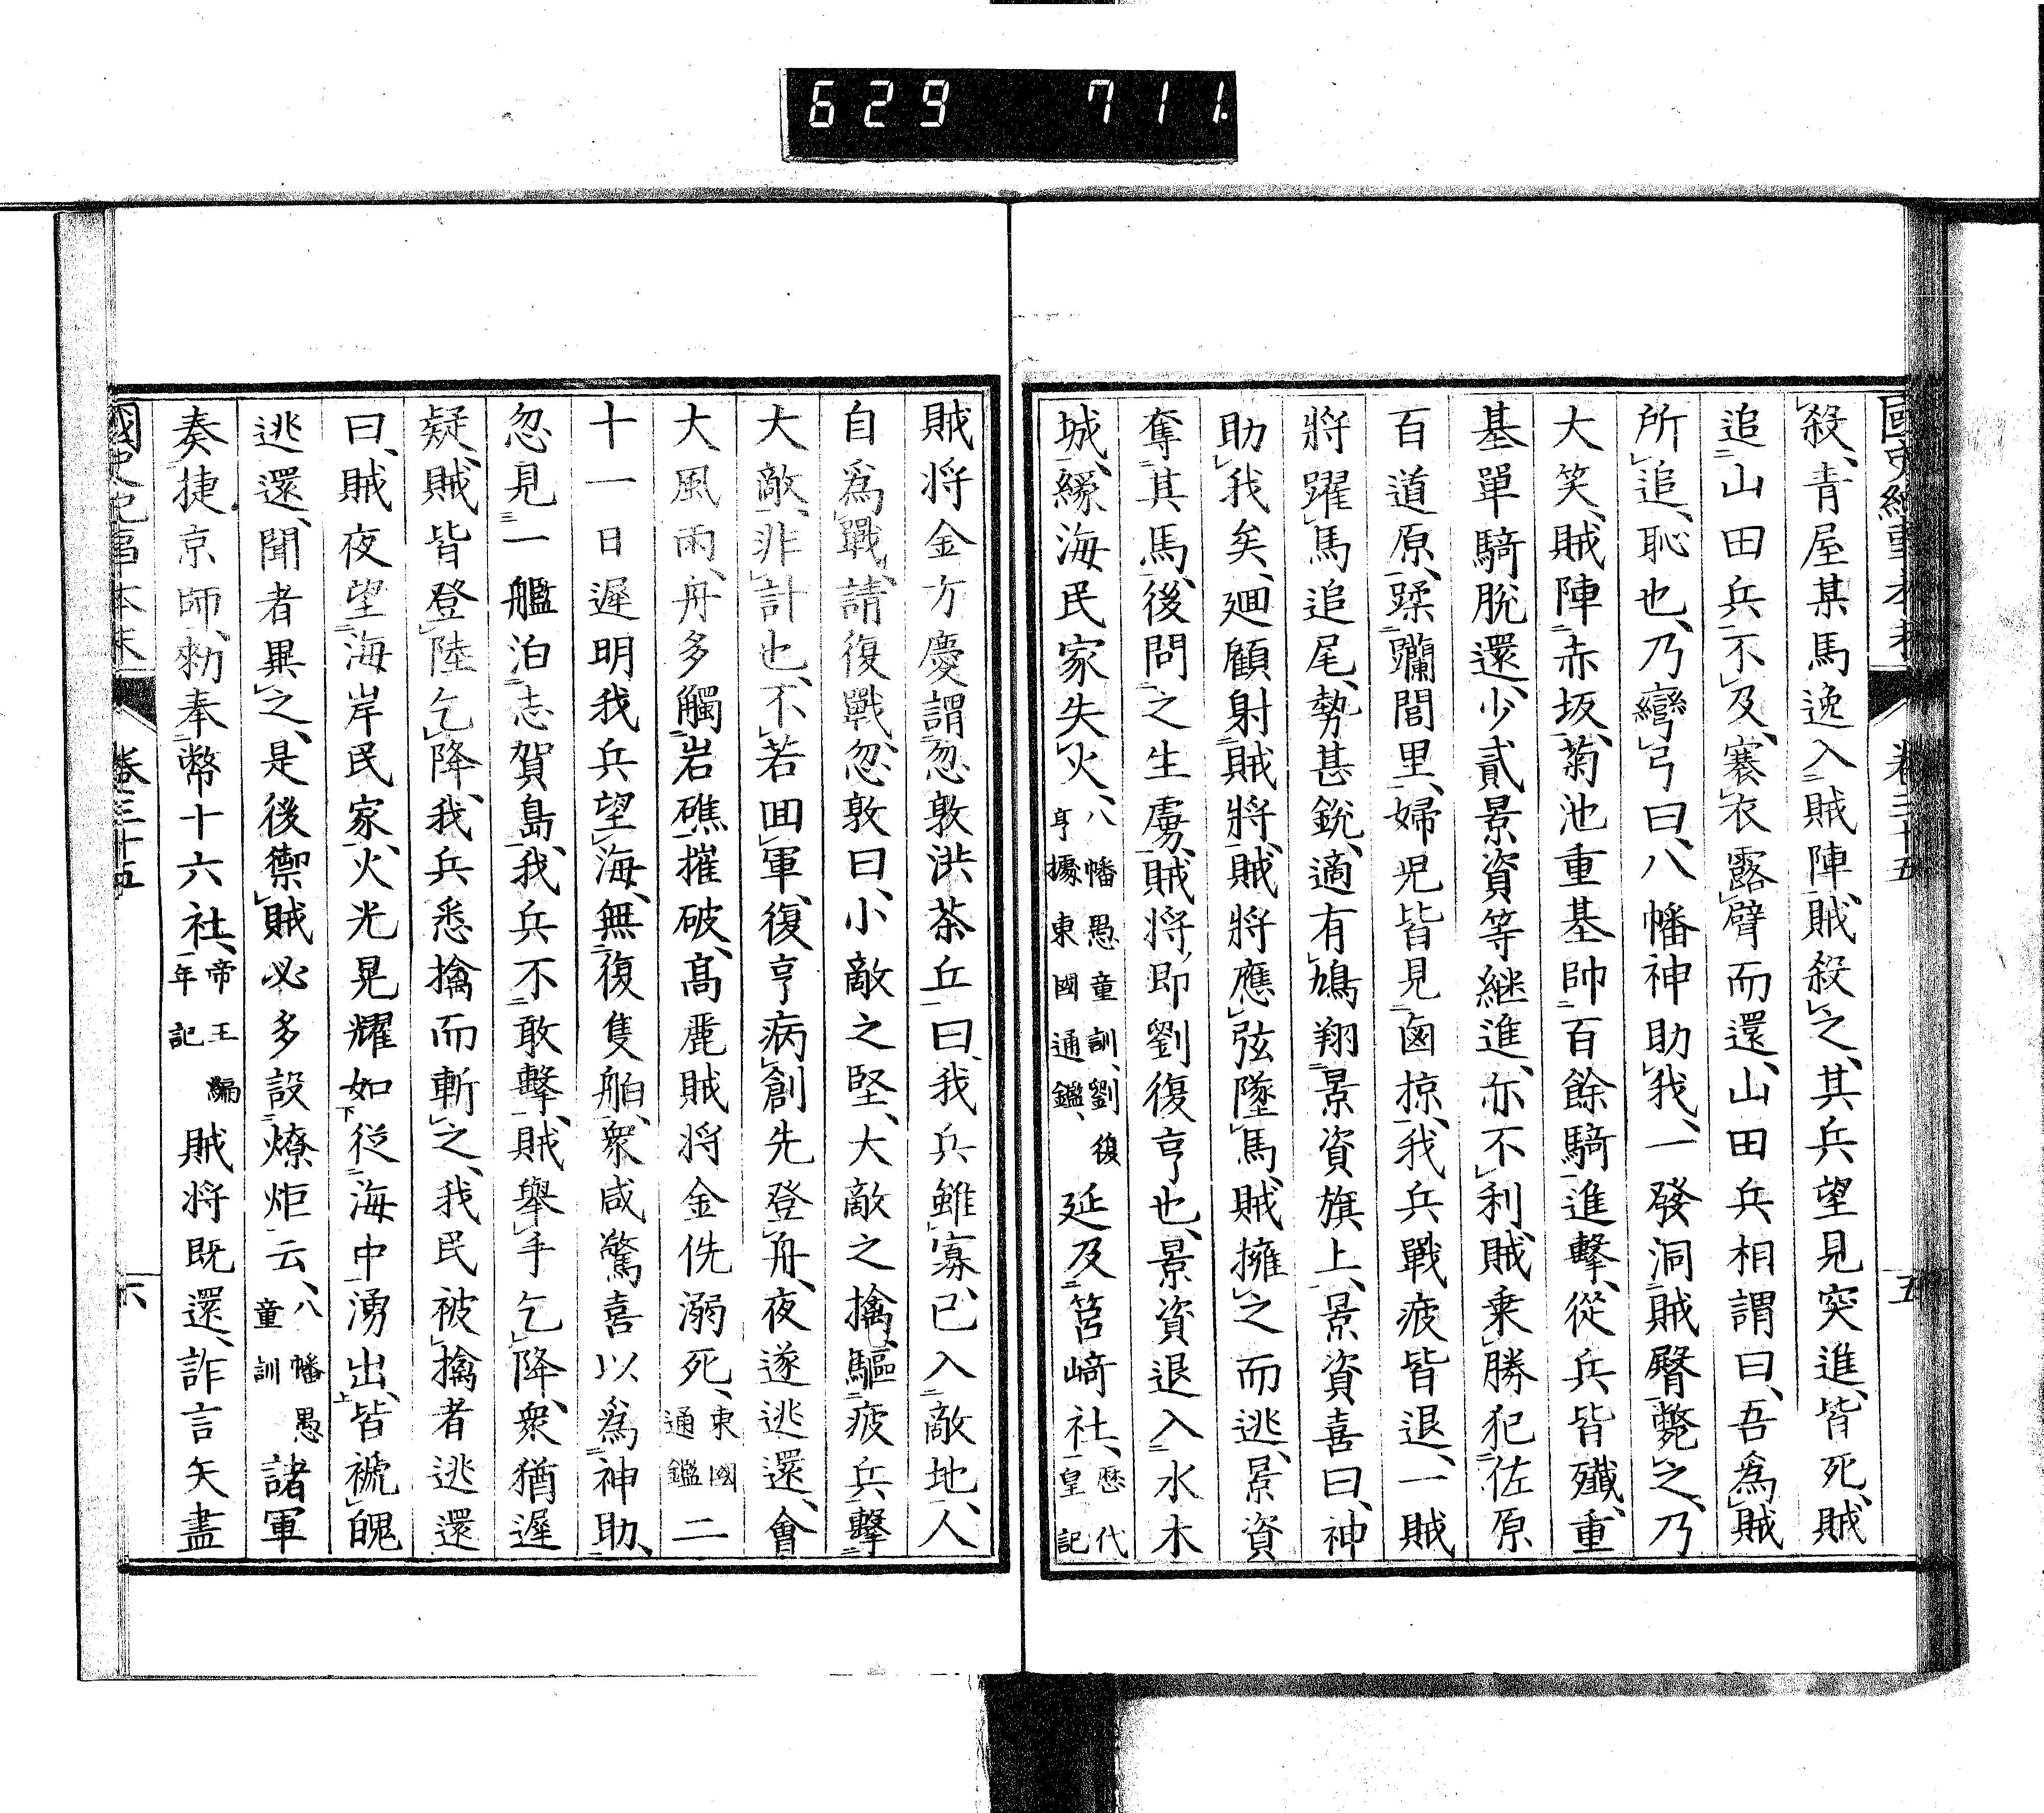 629 711
國史紀事本末 卷三十五 五
殺、青屋某馬逸入賊陣、賊殺之、其兵望見突進、皆死、賊
追山田兵不及、褰衣露臂而還、山田兵相謂曰、吾爲賊
所追、恥也、乃彎弓曰、八幡神助我、一發洞賊臀斃之、乃
大笑、賊陣赤坂、菊池重基帥百餘騎進擊、從兵皆殲、重
基單騎脫還、少貳景資等継進、亦不利、賊乗勝犯佐原
百道原、蹂躪閭里、婦児皆見鹵掠、我兵戰疲皆退、一賊
將躍馬追尾、勢甚銳、適有鳩翔景資旗上、景資喜曰、神
助我矣、廻顧射賊將、賊將應弦墜馬、賊擁之而逃、景資
奪其馬、後問之生虜、賊將即劉復亨也、景資退入水木
城、緣海民家失火、八幡愚童訓、劉復亨據東國通鑑、延及筥﨑社、歷代皇記
賊将金方慶謂忽敦洪茶丘曰、我兵雖寡、已入敵地、人
自爲戰、請復戰、忽敦曰、小敵之堅、大敵之擒、驅疲兵擊
大敵、非計也、不若回軍、復亨病創先登舟、夜遂逃還、會
大風雨、舟多觸岩礁摧破、高麗賊将金侁溺死、東國通鑑二
十一日遲明我兵望海、無復隻舶、衆咸驚喜以爲神助、
忽見一艦泊志賀島、我兵不敢擊、賊舉手乞降、衆猶遲
疑、賊皆登陸乞降、我兵悉擒而斬之、我民被擒者逃還
曰、賊夜望海岸民家、火光晃耀如從海中湧出、皆褫魄
逃還、聞者異之、是後禦賊必多設燎炬云、八幡愚童訓諸軍
奏捷京師、勅奉幣十六社、帝王編年記賊将既還、詐言矢盡
國史紀事本末 卷三十五 六